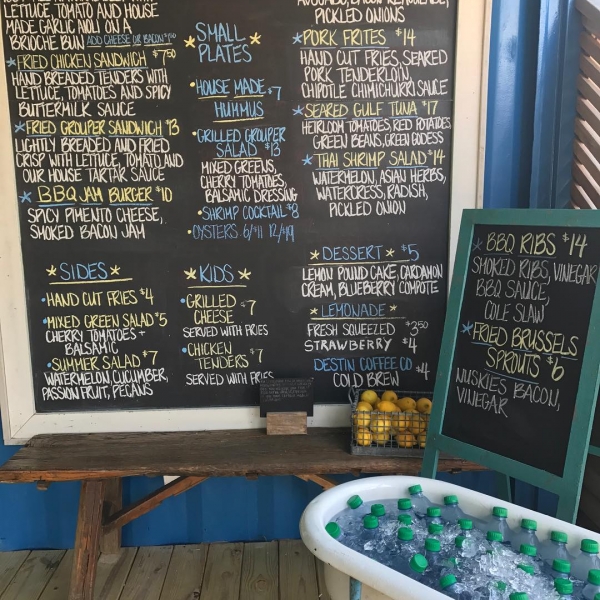 LETTUCE, TOMATO AND HOUSE
MADE GARLIC AIOLI ON A
BRIOCHE BUN ADD CHEESE OR BACON
FRIED CHICKEN SANDWICH $7.50
HAND BREADED TENDERS WITH
LETTUCE, TOMATOES AND SPICY
BUTTERMILK SAUCE
FRIED GROUPER SANDWICH $13
LIGHTLY BREADED AND FRIED
CRISP WITH LETTUCE, TOMATO, AND
OUR HOUSE TARTAR SAUCE
B.B.Q JAM BURGER $10
SPICY PIMENTO CHEESE,
SMOKED BACON JAM
SIDES
HAND CUT FRIES $4
MIXED GREEN SALAD $5
CHERRY TOMATOES +
BALSAMIC
SUMMER SALAD $7
WATERMELON, CUCUMBER,
PASSION FRUIT, PECANS
SMALL
PLATES
HOUSE MADE $7
HUMMUS
GRILLED GROUPER
SALAD $13
MIXED GREENS,
CHERRY TOMATOES,
BALSAMIC DRESSING
SHRIMP COCKTAIL $8
OYSTERS 6/$11 12/$19
KIDS
GRILLED $7
CHEESE
SERVED WITH FRIES
CHICKEN
TENDERS $7
SERVED WITH FRIES
PICKLED ONIONS
PORK FRITES $14
HAND CUT FRIES, SEARED
PORK TENDERLOIN,
CHIPOTLE CHIMICHURRI SAUCE
SEARED GULF TUNA $17
HEIRLOOM TOMATOES, RED POTATOES,
GREEN BEANS, GREEN GODESS
THAI SHRIMP SALAD $14
WATERMELON, ASIAN HERBS,
WATERCRESS, RADISH,
PICKLED ONION
DESSERT $5
LEMON POUND CAKE, CARDAMON
CREAM, BLUEBERRY COMPOTE
LEMONADE
FRESH SQUEEZED $3.50
STRAWBERRY $4
DESTIN COFFEE CO $4
COLD BREW
BBQ RIBS $14
SMOKED RIBS, VINEGAR
BBQ SAUCE,
COLE SLAW
FRIED BRUSSELS
SPROUTS $6
NUESKIES BACON,
VINEGAR